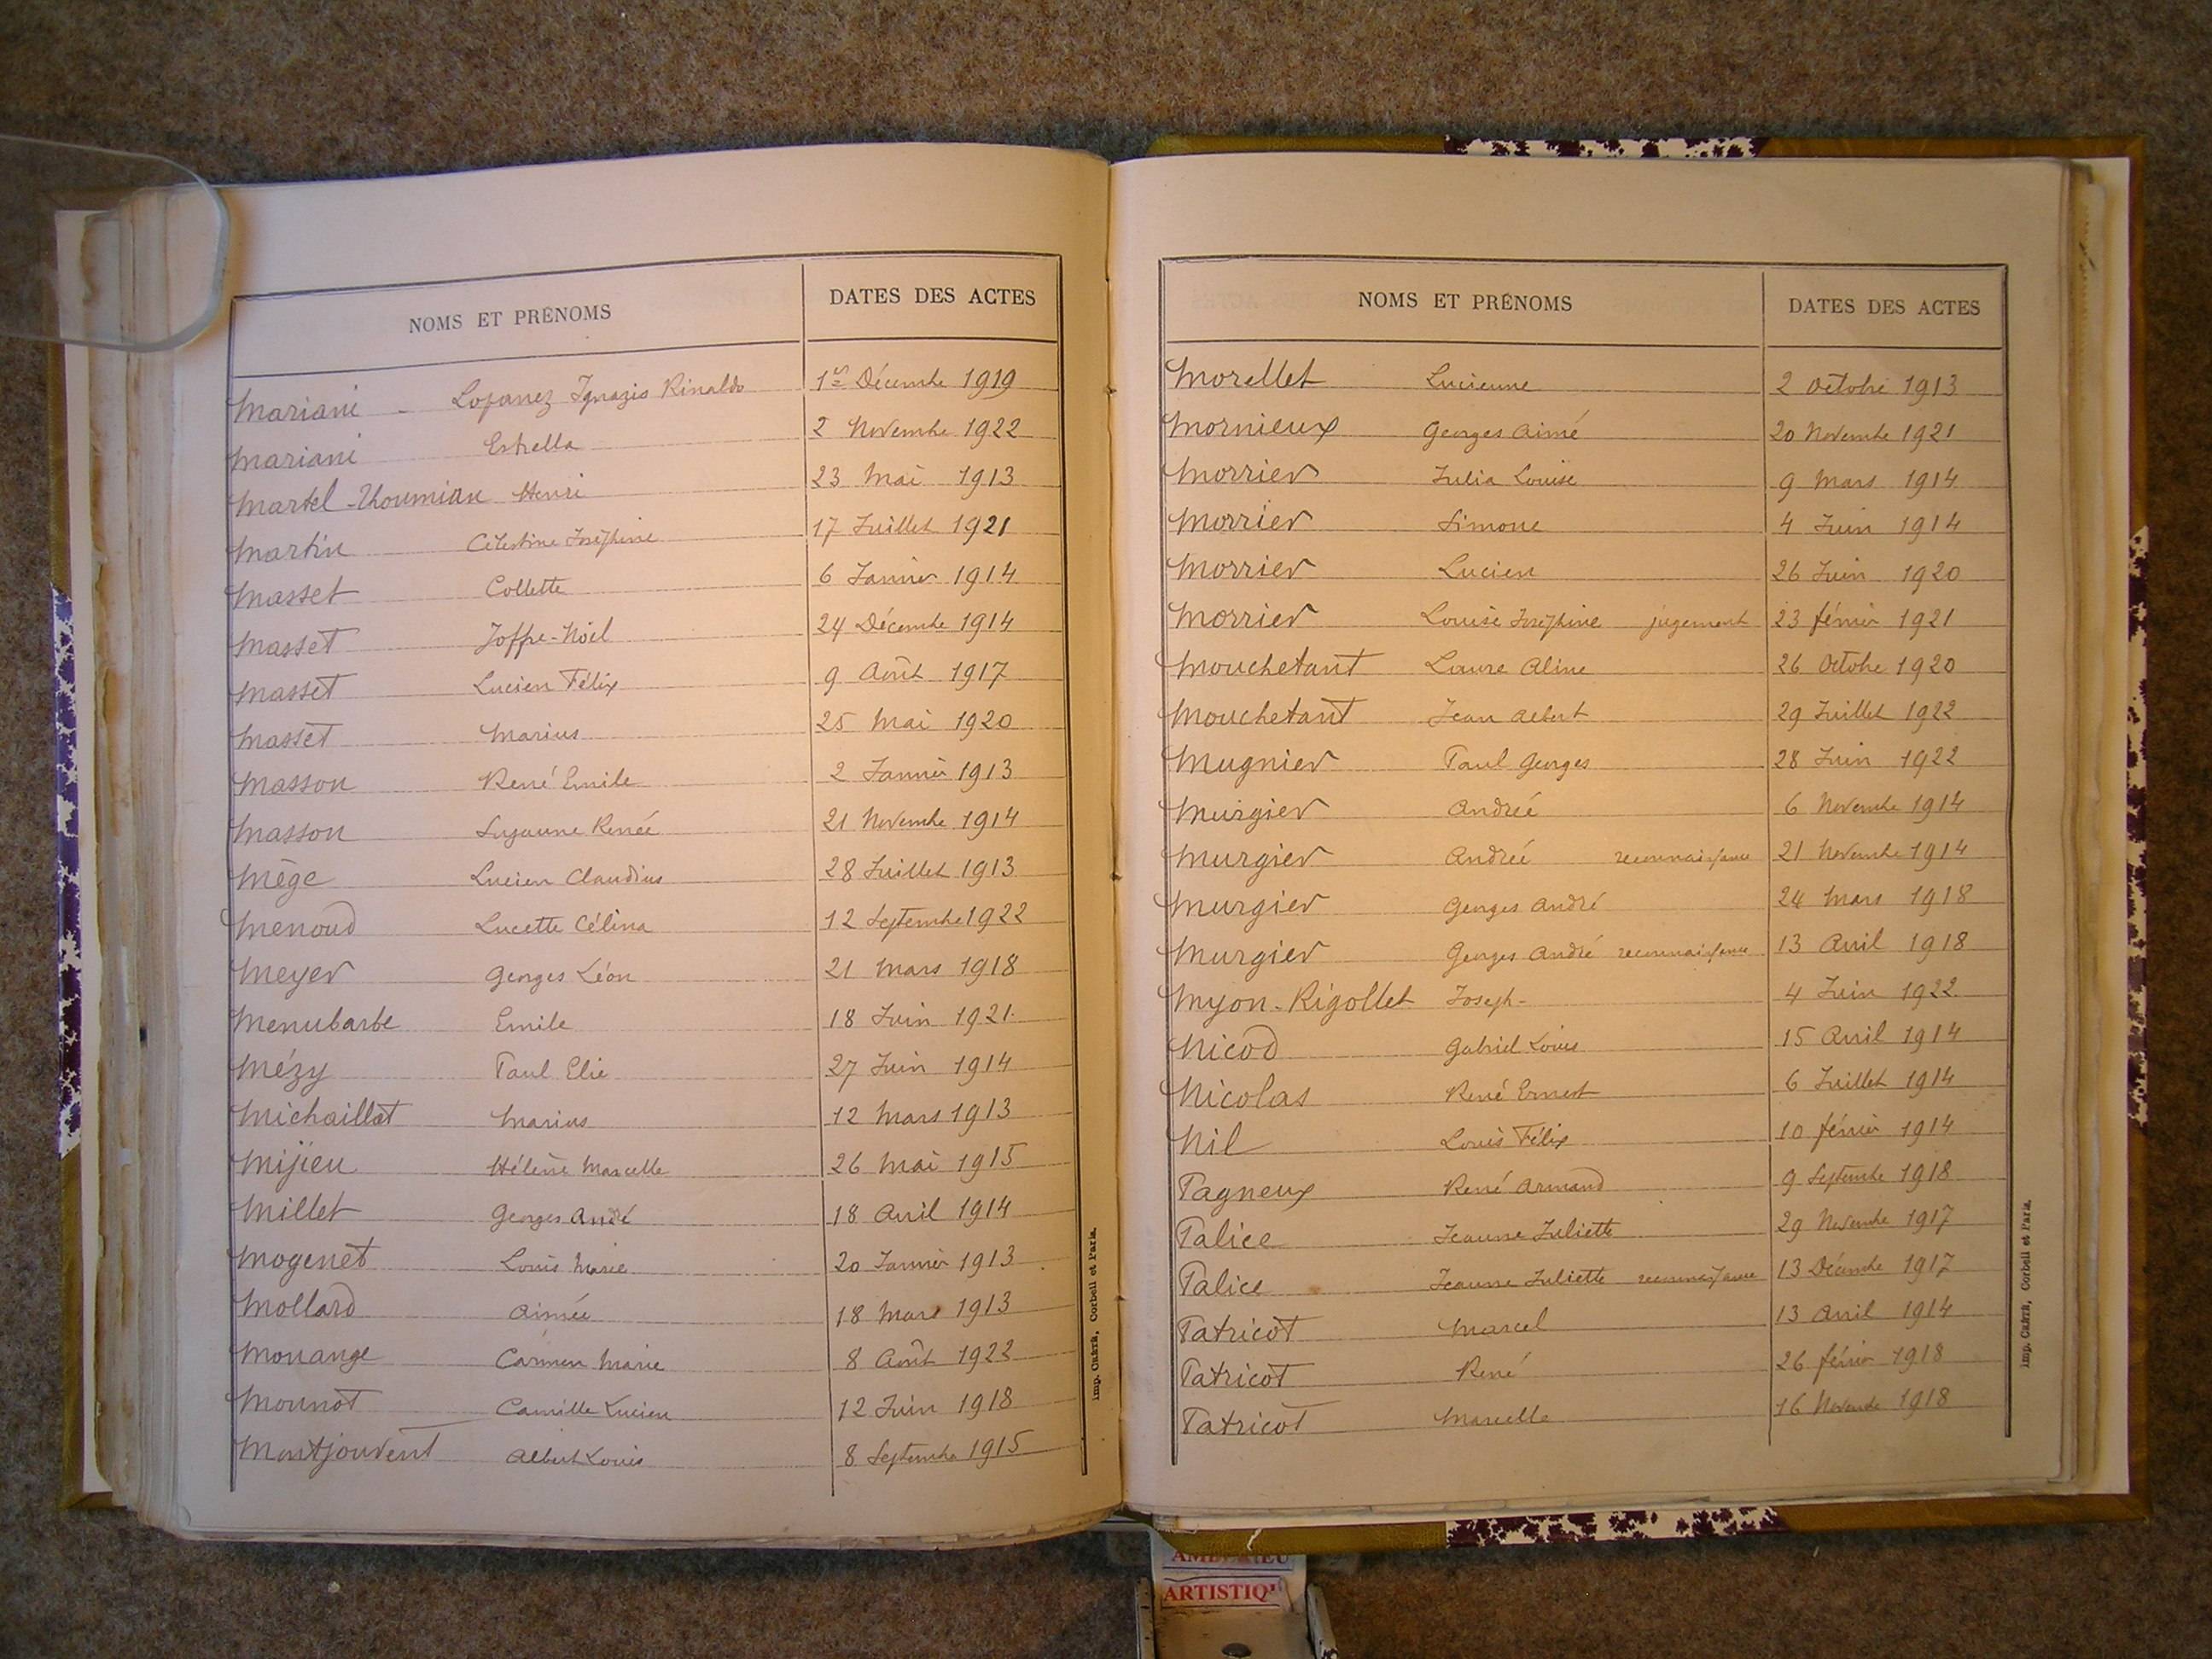 NOMS ET PRÉNOMS DATES DES ACTES
Mariani - Lopanez Ignazis Rinaldo 1er Décembre 1919
Mariani Estrella 2 Novembre 1922
Martel-Thoumian Henri 23 Mai 1913
Martin Célestine Joséphine 17 Juillet 1921
Masset Collette 6 Janvier 1914
Masset Joffre-Noël 24 Décembre 1914
Masset Lucien Félix 9 Août 1917
Masset Marius 25 Mai 1920
Masson René Emile 2 Janvier 1913
Masson Suzanne Renée 21 Novembre 1914
Mège Lucien Claudius 28 Juillet 1913
Menoud Lucette Célina 12 Septembre 1922
Meyer Georges Léon 21 Mars 1918
Menubarbe Emile 18 Juin 1921
Mézy Paul Elie 27 Juin 1914
Michaillat Marius 12 Mars 1913
Mijieu Hélène Marcelle 26 Mai 1915
Millet Georges André 18 Avril 1914
Mogenet Louis Marie 20 Janvier 1913
Mollard Aimée 18 Mars 1913
Monange Carmen Marie 8 Août 1922
Monnot Camille Lucien 12 Juin 1918
Montjouvent Albert Louis 8 Septembre 1915
Imp. CRÉTÉ, Corbeil et Paris.
NOMS ET PRÉNOMS DATES DES ACTES
Morellet Lucienne 2 Octobre 1913
Mornieux Georges Aimé 20 Novembre 1921
Morrier Julia Louise 9 Mars 1914
Morrier Simone 4 Juin 1914
Morrier Lucien 26 Juin 1920
Morrier Louise Joséphine jugement 23 février 1921
Mouchetant Laure Aline 26 Octobre 1920
Mouchetant Jean Albert 29 Juillet 1922
Mugnier Paul Georges 28 Juin 1922
Murgier Andrée 6 Novembre 1914
Murgier Andrée reconnaissance 21 Novembre 1914
Murgier Georges André 24 Mars 1918
Murgier Georges André reconnaissance 13 Avril 1918
Myon-Rigollet Joseph- 4 Juin 1922
Nicod Gabriel Louis 15 Avril 1914
Nicolas René Ernest 6 Juillet 1914
Nil Louis Félix 10 février 1914
Pagneux René Armand 9 Septembre 1918
Palice Jeanne Juliette 29 Novembre 1917
Palice Jeanne Juliette reconnaissance 13 Décembre 1917
Patricot Marcel 13 Avril 1914
Patricot René 26 février 1918
Patricot Marcelle 16 Novembre 1918
Imp. CRÉTÉ, Corbeil et Paris.
ARTISTIQ